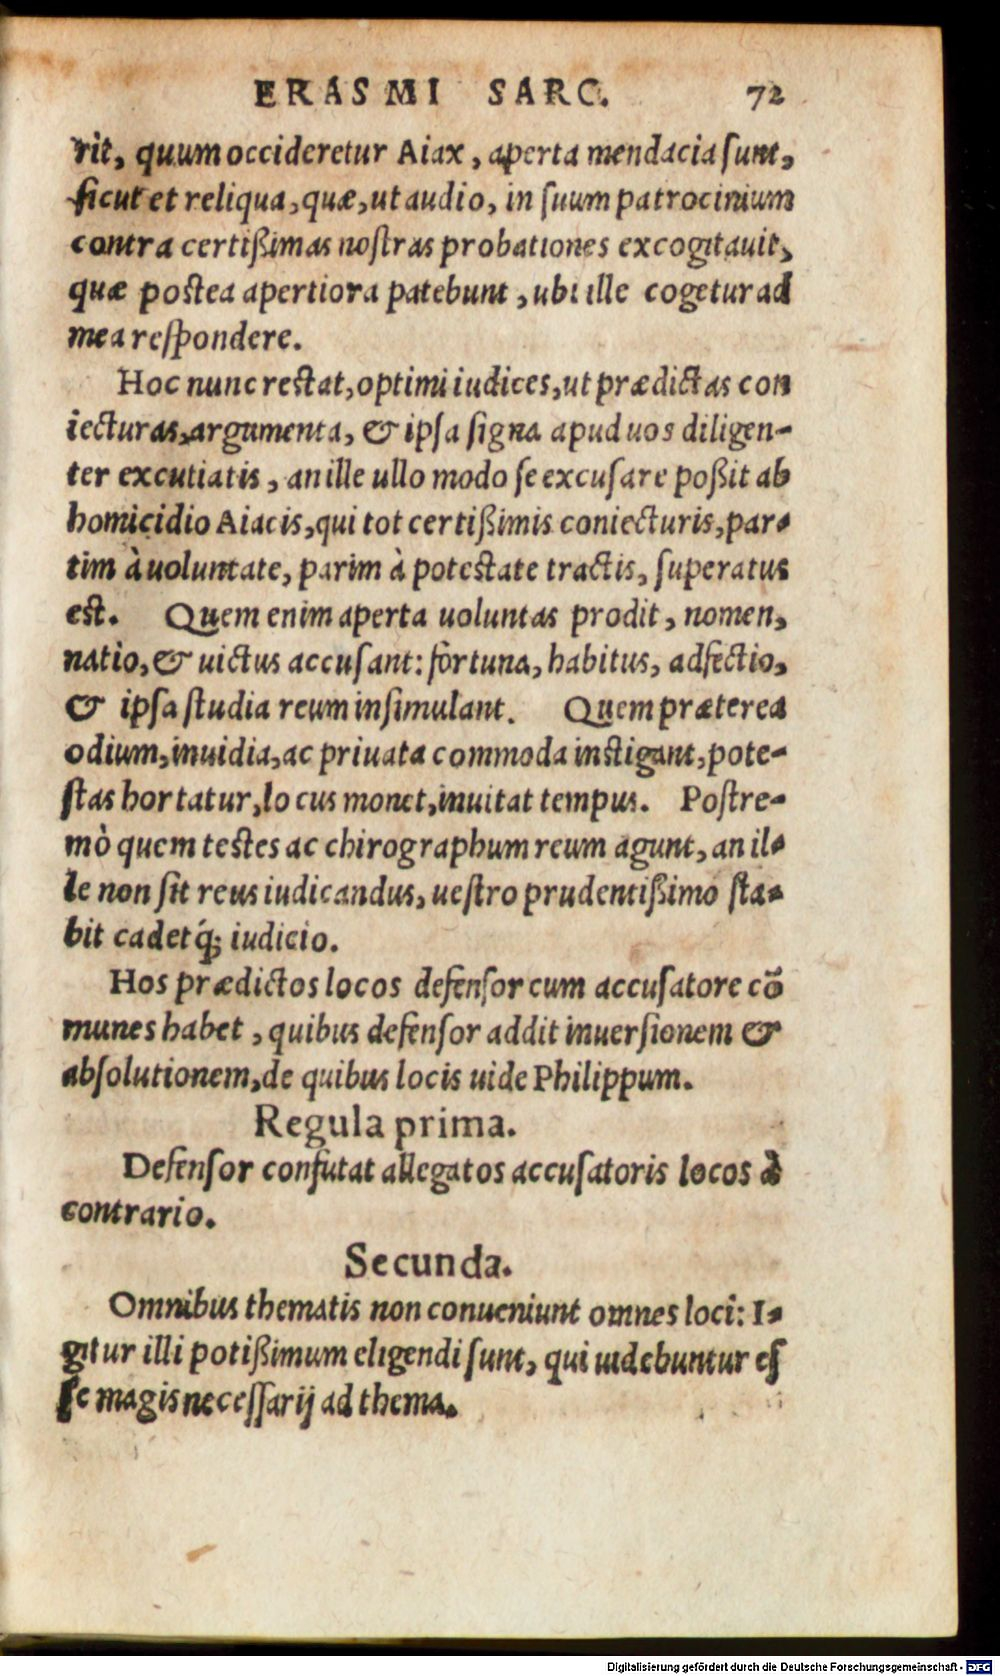 ERASMI SARC. 72
rit, quum occideretur Aiax, aperta mendacia sunt,
sicut et reliqua, quæ, ut audio, in suum patrocinium
contra certißimas nostras probationes excogitauit,
quæ postea apertiora patebunt, ubi ille cogetur ad
mea respondere.
Hoc nunc restat, optimi iudices, ut prædictas con
iecturas, argumenta, & ipsa signa apud uos diligen-
ter excutiatis, an ille ullo modo se excusare poßit ab
homicidio Aiacis, qui tot certißimis coniecturis, par-
tim à uoluntate, parim à potestate tractis, superatus
est. Quem enim aperta uoluntas prodit, nomen,
natio, & uictus accusant: fortuna, habitus, adfectio,
& ipsa studia reum insimulant. Quem præterea
odium, inuidia, ac priuata commoda instigant, pote-
stas hortatur, locus monet, inuitat tempus. Postre-
mò quem testes ac chirographum reum agunt, an il-
le non sit reus iudicandus, uestro prudentißimo sta-
bit cadetq́; iudicio.
Hos prædictos locos defensor cum accusatore cō
munes habet, quibus defensor addit inuersionem &
absolutionem, de quibus locis uide Philippum.
Regula prima.
Defensor confutat allegatos accusatoris locos à
contrario.
Secunda.
Omnibus thematis non conueniunt omnes loci: I-
gitur illi potißimum eligendi sunt, qui uidebuntur es
se magis necessarij ad thema.
Digitalisierung gefördert durch die Deutsche Forschungsgemeinschaft - DFG